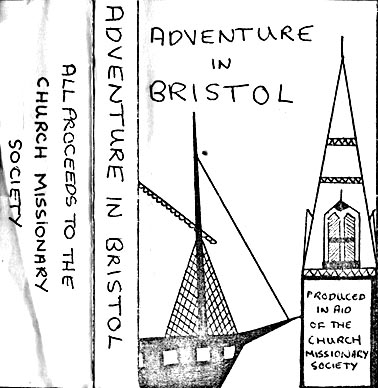 ALL PROCEEDS TO THE
CHURCH MISSIONARY
SOCIETY
ADVENTURE IN BRISTOL
ADVENTURE
IN
BRISTOL
PRODUCED
IN AID
OF THE
CHURCH
MISSIONARY
SOCIETY